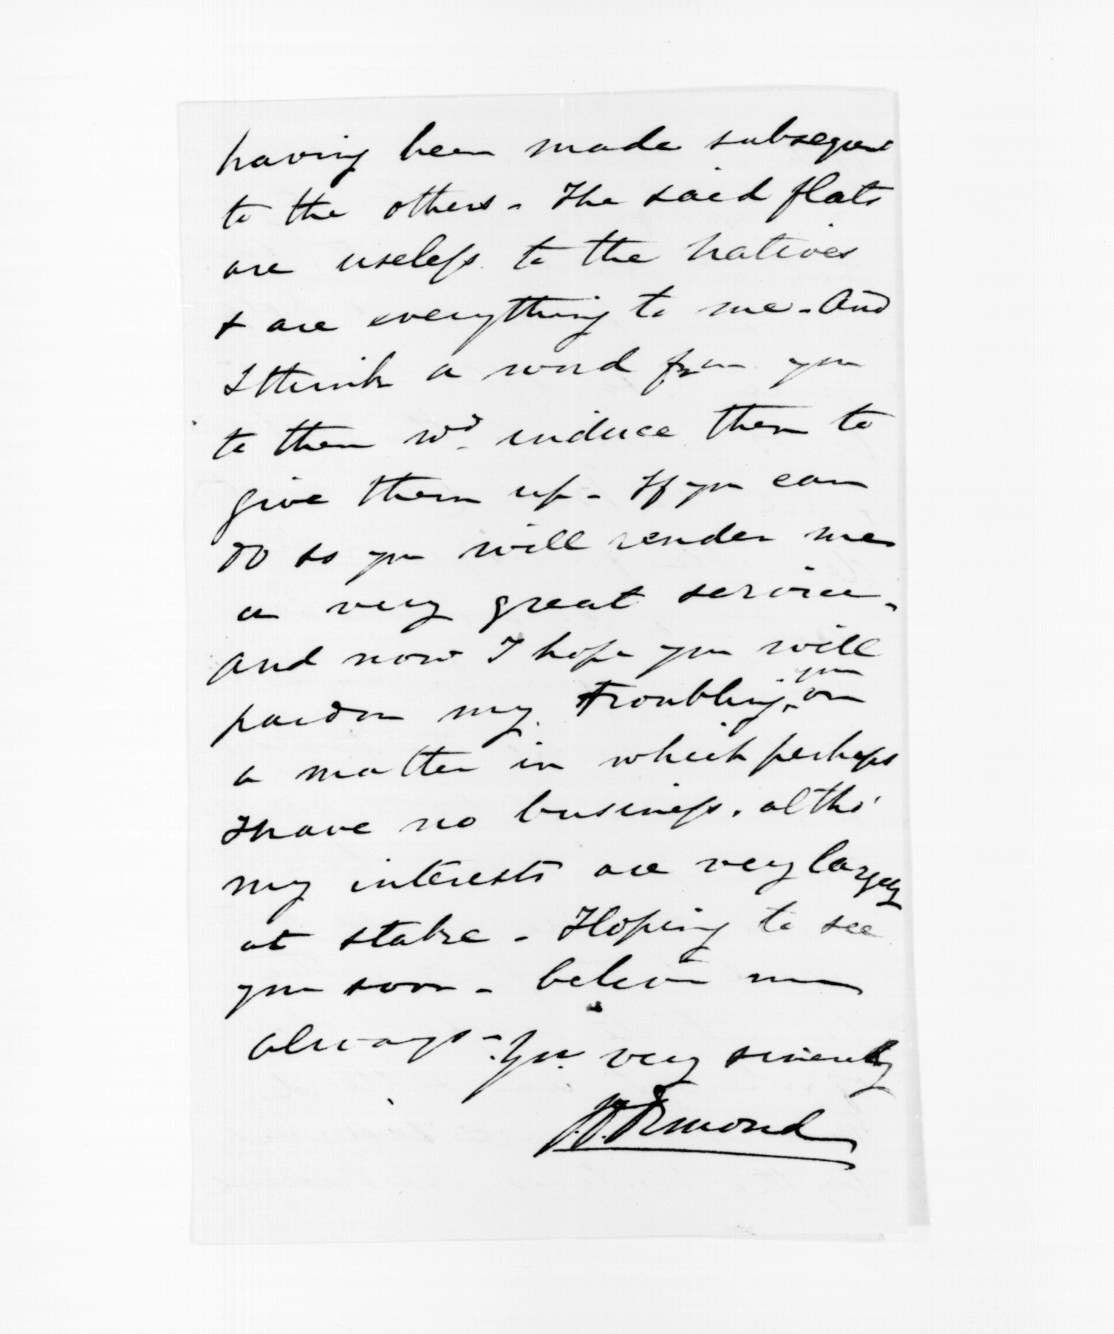 having been made subsequent
to the others - The said flats
are useless to the natives
& are everything to me - And
I think a word from you
to them wd. induce them to
give them up - If you can
do so you will render me
a very great service -
and now I hope you will
pardon my troubling you on
a matter in which perhaps
I have no business. altho'
my interests are very largely
at stake - Hoping to see
you soon - believe me
always - Yrs. very sincerely
Ormond